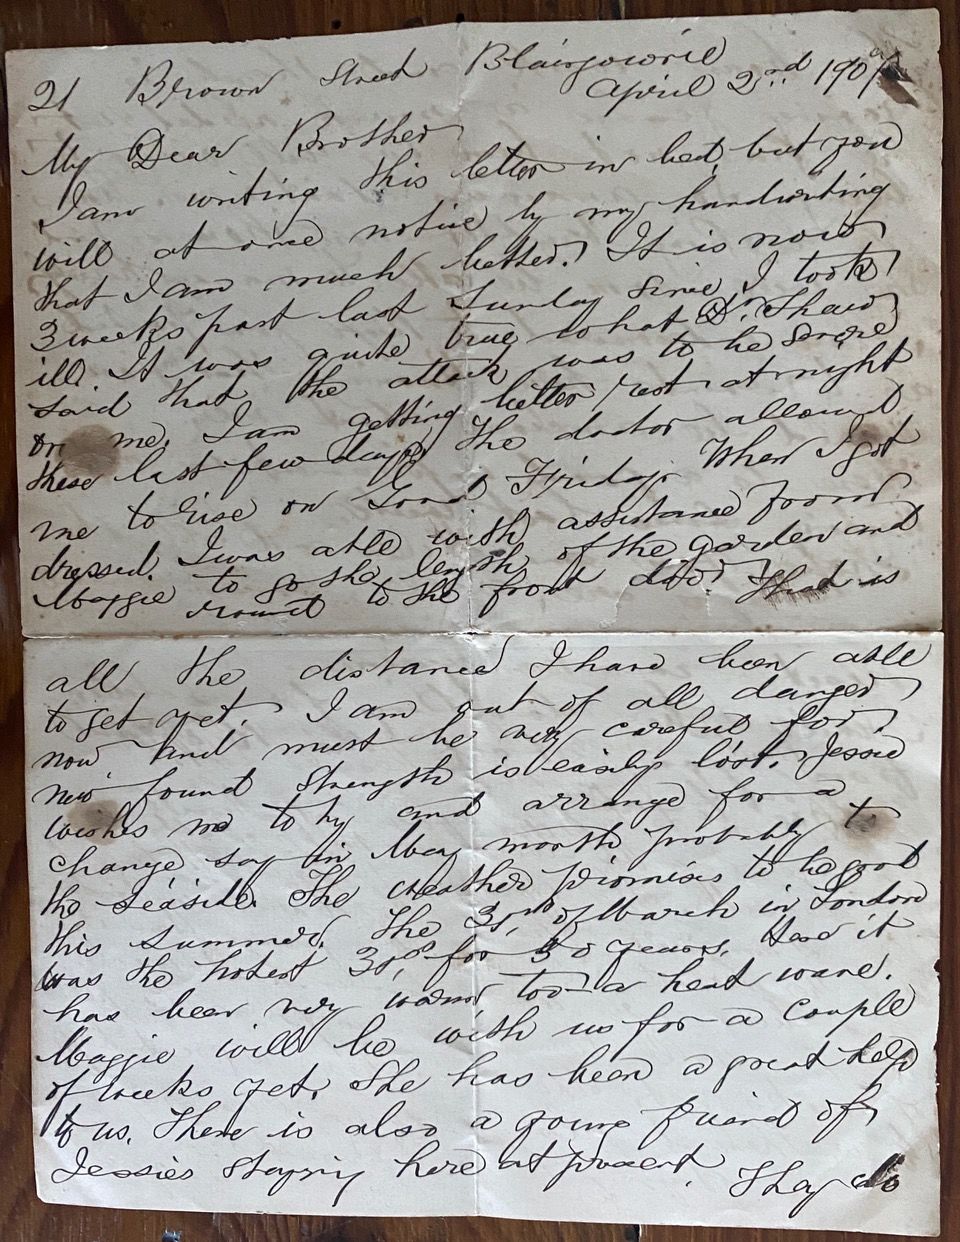 21 Brown Street Blairgowrie
April 2nd 190
My Dear Brother
I am writing this letter in bed, but you
will at once notice by my handwriting
that I am much better. It is now
3 weeks past last Sunday since I took
ill. It was quite true what Dr. Shaw
said that the attack was to be severe
on me. I am getting better rest at night
these last few days. The doctor allowed
me to rise on Good Friday. When I got
dressed. I was able with assistance from
Maggie to go the length of the garden and
round to the front door. That is
all the distance I have been able
to get yet. I am out of all danger
now and must be very careful for
new found strength is easily lost. Jessie
wishes me to try and arrange for a
change say in May month probably to
the seaside. The weather promises to be good
this summer. The 31st of March in London
was the hotest 31st for 50 years. Here it
has been very warm too a heat wave.
Maggie will be with us for a couple
of weeks yet. She has been a great help
to us. There is also a young friend of
Jessies staying here at present. They do